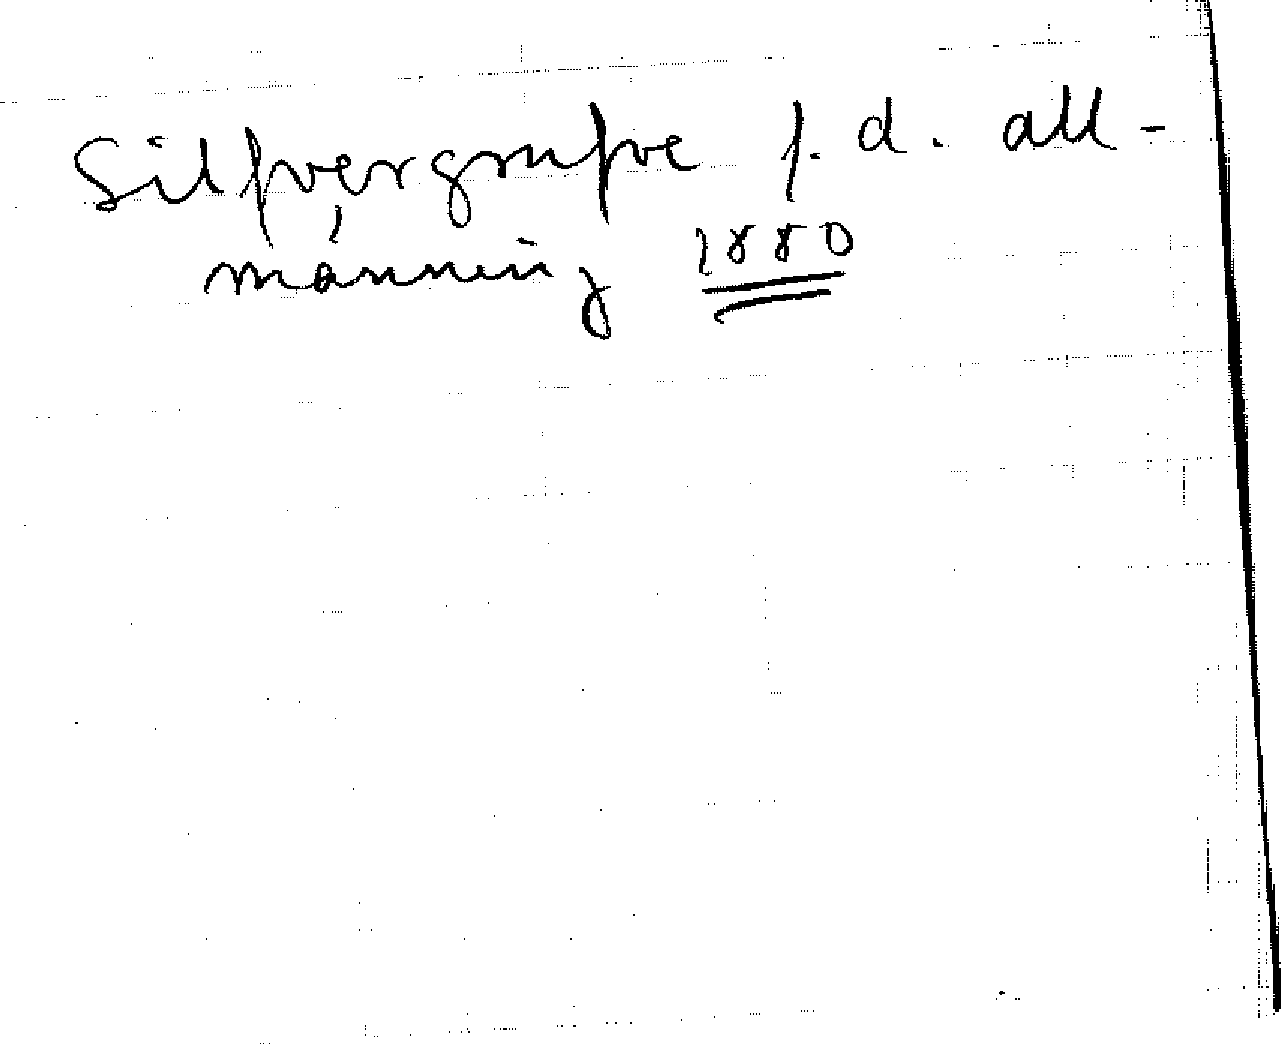 Silfvergrufve f.d. all-
männing 1880